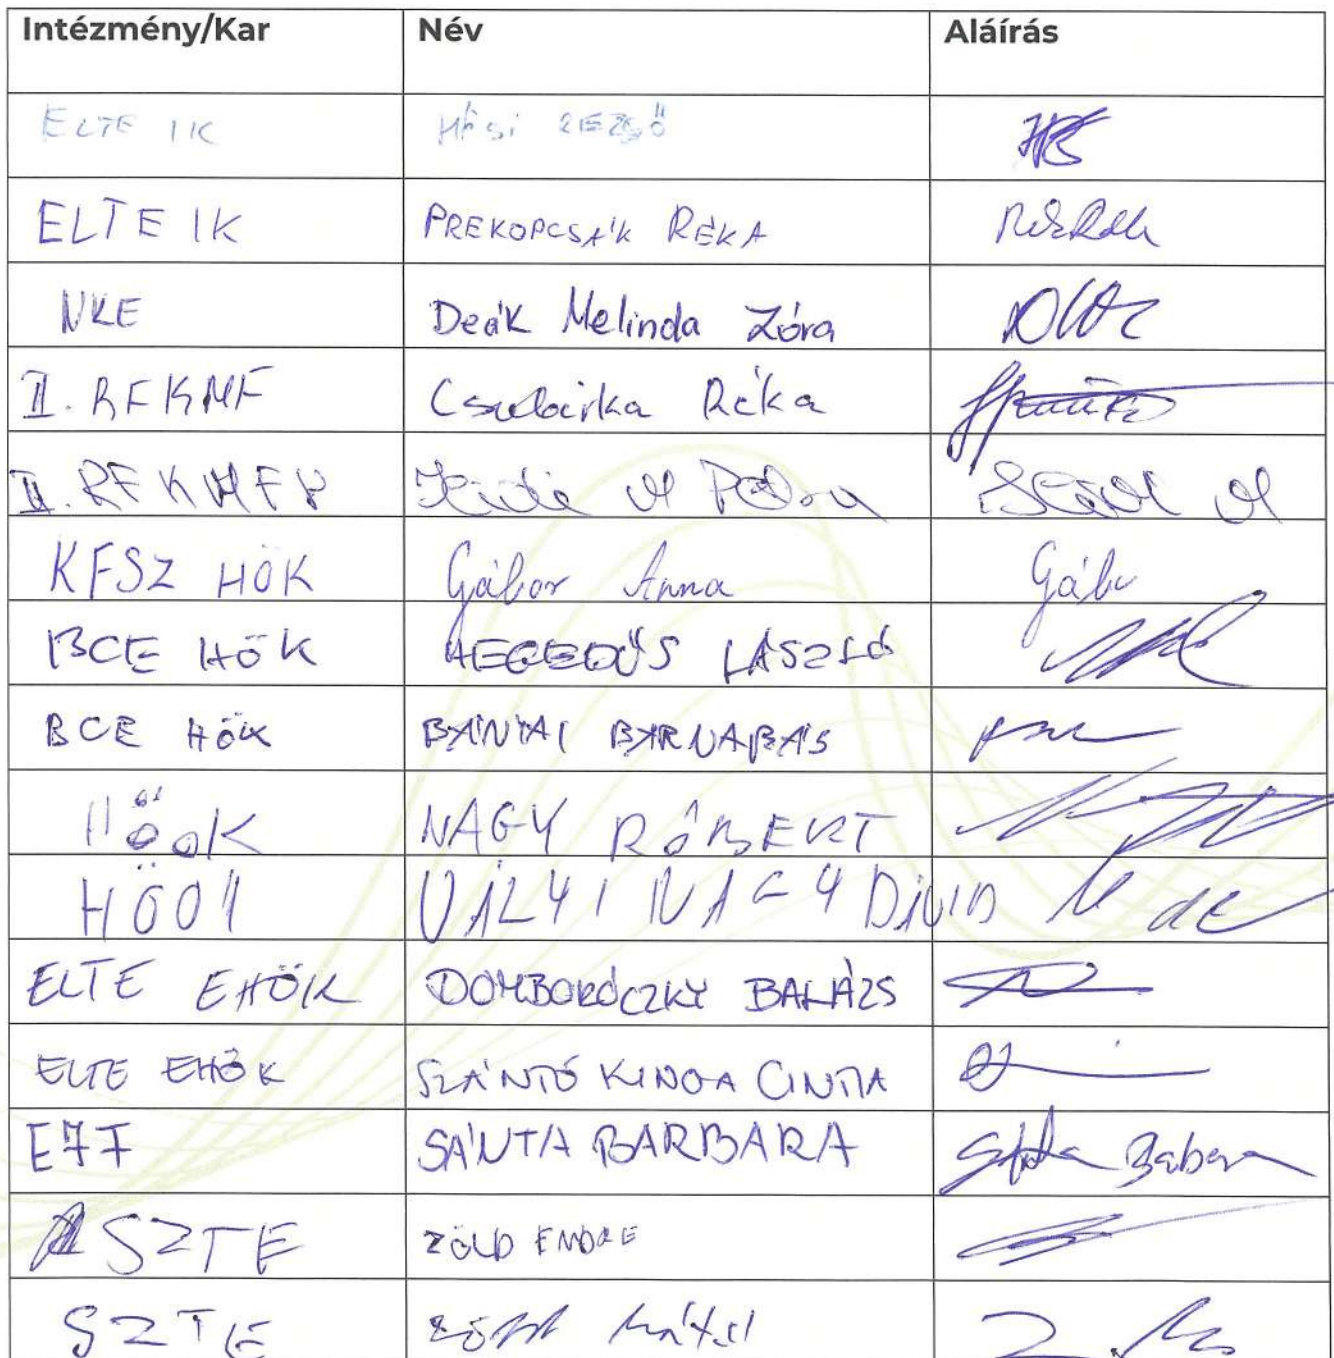 Intézmény/Kar Név Aláírás
ELTE IK HÁSI REZSŐ
ELTE IK PREKOPCSÁK RÉKA
NKE Deák Melinda Zóra
II. RFKMF Csubirka Réka
II. RFKMF
KFSZ HÖK Gábor Anna Gábor
BCE HÖK HEGEDŰS LÁSZLÓ
BCE HÖK BÁNYAI BARNABÁS
HÖOK NAGY RÓBERT
HÖOK VÁLYI NAGY DÁVID
ELTE EHÖK DOMBORÓCZKY BALÁZS
ELTE EHÖK SZÁNTÓ KINGA CINTIA
EJF SÁNTA BARBARA Sánta Barbara
SZTE ZÖLD ENDRE
SZTE Máté